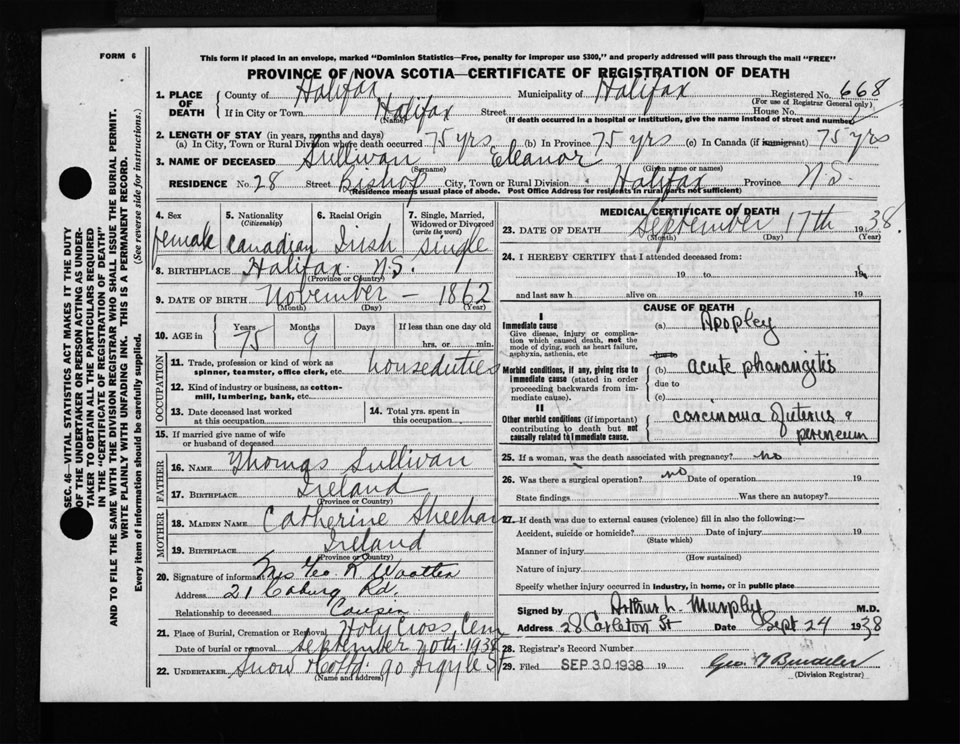 FORM 6
This form if placed in an envelope, marked "Dominion Statistics—Free, penalty for improper use $300," and properly addressed will pass through the mail "FREE"
PROVINCE OF NOVA SCOTIA—CERTIFICATE OF REGISTRATION OF DEATH
1. PLACE OF DEATH County of Halifax Municipality of Halifax Registered No. 668
(For use of Registrar General only)
If in City or Town Halifax Street House No.
(Name) (If death occurred in a hospital or institution, give the name instead of street and number)
2. LENGTH OF STAY (in years, months and days)
(a) In City, Town or Rural Division where death occurred 75 yrs (b) In Province 75 yrs (c) In Canada (if immigrant) 75 yrs
3. NAME OF DECEASED Sullivan Eleanor
(Surname) (Given name or names)
RESIDENCE No. 28 Street Bishop City, Town or Rural Division Halifax Province N.S.
(Residence means usual place of abode. Post Office Address for residents in rural parts not sufficient)
4. Sex female
5. Nationality (Citizenship) Canadian
6. Racial Origin Irish
7. Single, Married, Widowed or Divorced (write the word) single
8. BIRTHPLACE Halifax N.S.
(Province or Country)
9. DATE OF BIRTH November — 1862
(Month) (Day) (Year)
10. AGE in Years 75 Months 9 Days If less than one day old hrs. or min.
OCCUPATION
11. Trade, profession or kind of work as spinner, teamster, office clerk, etc. houseduties
12. Kind of industry or business, as cotton-mill, lumbering, bank, etc.
13. Date deceased last worked at this occupation
14. Total yrs. spent in this occupation
15. If married give name of wife or husband of deceased
FATHER
16. NAME Thomas Sullivan
17. BIRTHPLACE Ireland
(Province or Country)
MOTHER
18. MAIDEN NAME Catherine Sheehan
19. BIRTHPLACE Ireland
(Province or Country)
20. Signature of informant Mrs Geo R.
Address 21 Coburg Rd.
Relationship to deceased Cousin
21. Place of Burial, Cremation or Removal Holy Cross Cem
Date of burial or removal September 20th 1938
22. UNDERTAKER Snow & Co Ltd. 90 Argyle St
(Name and address)
MEDICAL CERTIFICATE OF DEATH
23. DATE OF DEATH September 17th 1938.
(Month) (Day) (Year)
24. I HEREBY CERTIFY that I attended deceased from:
19 to 19
and last saw h alive on 19
CAUSE OF DEATH
I
Immediate cause
Give disease, injury or complication which caused death, not the mode of dying, such as heart failure, asphyxia, asthenia, etc
(a) Apoplexy
due to
Morbid conditions, if any, giving rise to immediate cause (stated in order proceeding backwards from immediate cause).
(b) acute pharangitis
due to
(c)
II
Other morbid conditions (if important) contributing to death but not causally related to immediate cause.
carcinoma of uterus &
pereneum
25. If a woman, was the death associated with pregnancy? no
26. Was there a surgical operation? no Date of operation 19
State findings Was there an autopsy?
27. If death was due to external causes (violence) fill in also the following:—
Accident, suicide or homicide? Date of injury 19
(State which)
Manner of injury
(How sustained)
Nature of injury
Specify whether injury occurred in industry, in home, or in public place
Signed by Arthur L. Murphy M.D.
Address 28 Carleton St Date Sept 24 1938
28. Registrar's Record Number
29. Filed SEP 30 1938 19
(Division Registrar)
SEC. 46—VITAL STATISTICS ACT MAKES IT THE DUTY
OF THE UNDERTAKER OR PERSON ACTING AS UNDERTAKER TO OBTAIN ALL THE PARTICULARS REQUIRED
IN THE "CERTIFICATE OF REGISTRATION OF DEATH"
AND TO FILE THE SAME WITH THE DIVISION REGISTRAR WHO SHALL ISSUE THE BURIAL PERMIT.
WRITE PLAINLY WITH UNFADING INK. THIS IS A PERMANENT RECORD.
Every item of information should be carefully supplied. (See reverse side for instructions.)